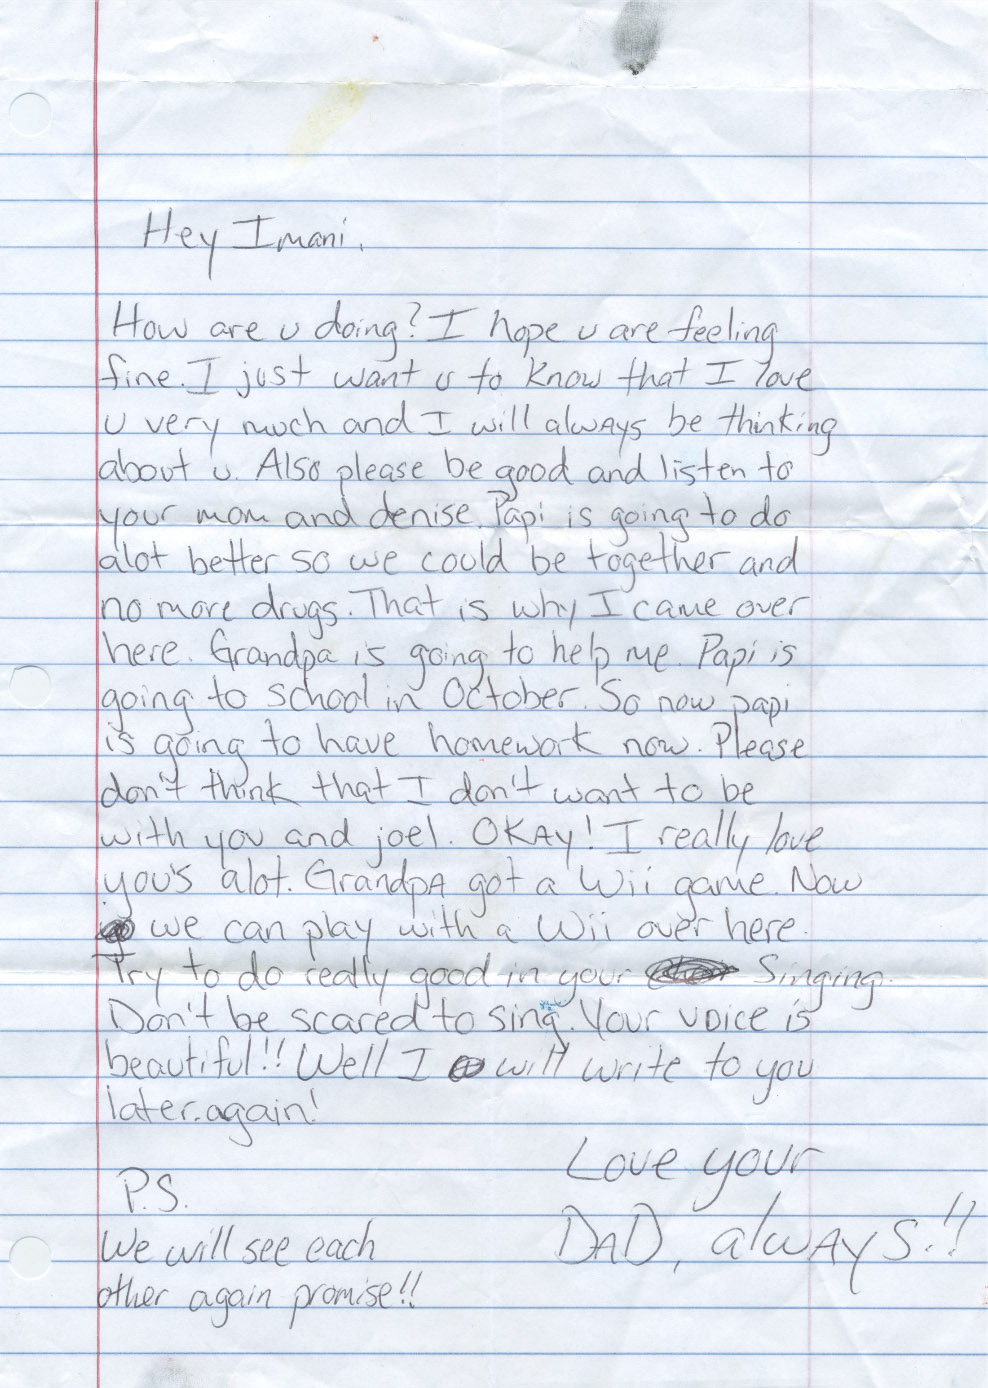 Hey Imani.
How are u doing? I hope u are feeling
fine. I just want u to know that I love
u very much and I will always be thinking
about u. Also please be good and listen to
your mom and denise. Papi is going to do
alot better so we could be together and
no more drugs. That is why I came over
here. Grandpa is going to help me. Papi is
going to school in October. So now papi
is going to have homework now. Please
don't think that I don't want to be
with you and joel. OKAY! I really love
you's alot. GrandpA got a Wii game. Now
we can play with a Wii over here.
Try to do really good in your Singing.
Don't be scared to sing. Your voice is
beautiful!! Well I will write to you
later.again!
Love your
DAD, always!!
P.S.
We will see each
other again promise!!